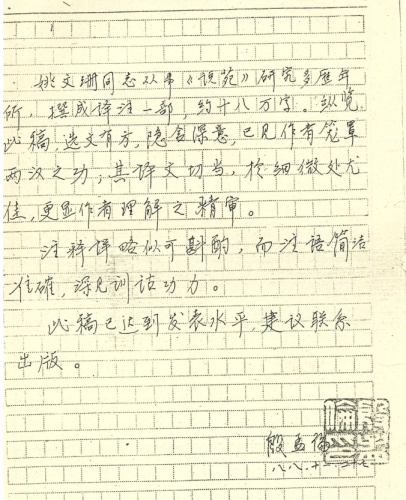 姚文珊同志从事《说苑》研究多历年
所，撰成译注一部，约十八万字。纵览
此稿，选文有方，隐含深意，已见作者笼罩
两汉之功；其译文切当，於细微处尤
佳，更显作者理解之精审。
注释详略似可斟酌，而注语简洁
准确，深见训诂功力。
此稿已达到发表水平，建议联系
出版。
殷孟伦
八八.十